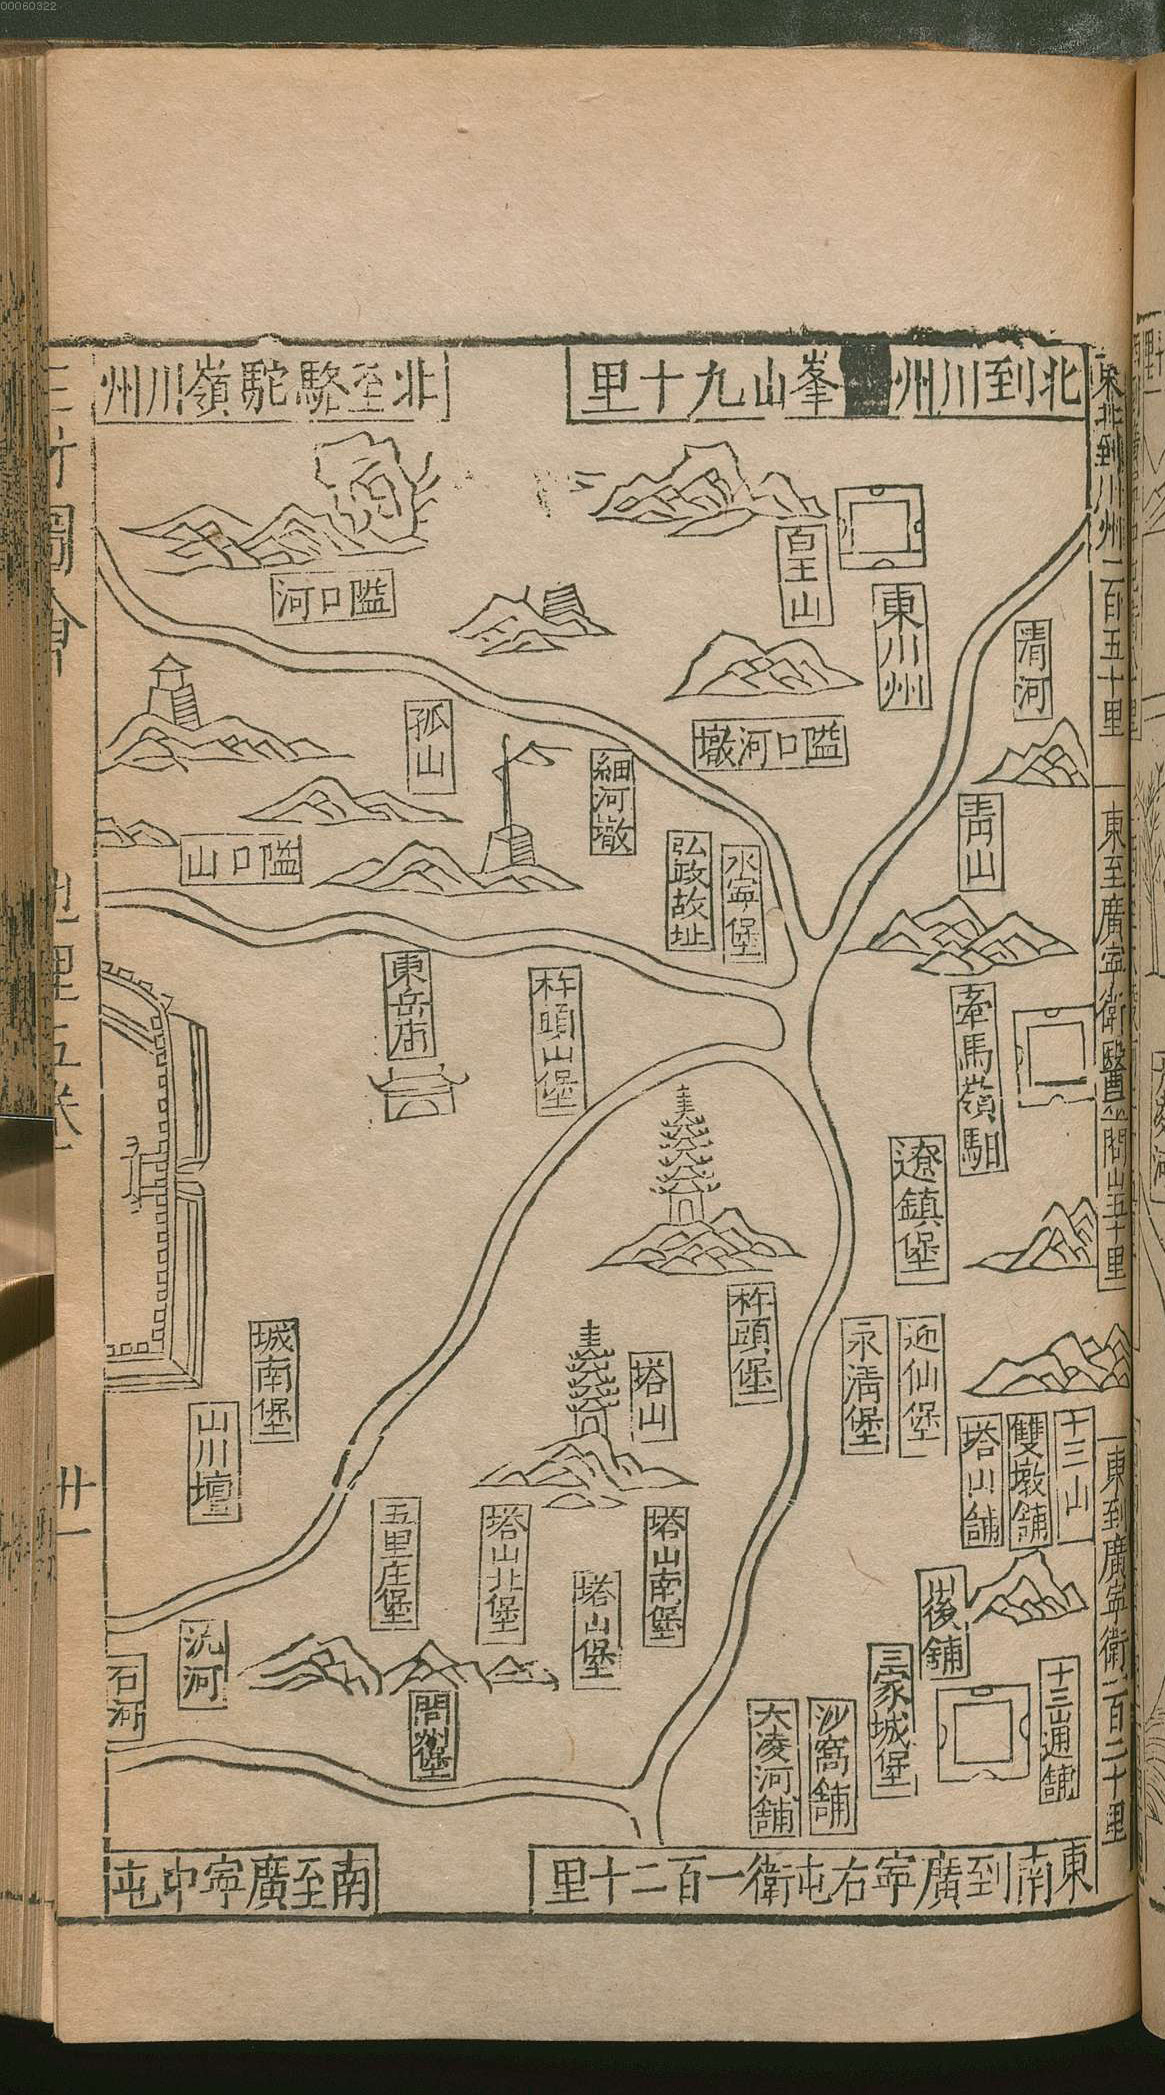 00060322
東北到川州二百五十里
東至廣寧衛醫巫閭山五十里
東到廣寧衛一百二十里
北到川州
峯山九十里
北至駱駝嶺川州
東南到廣寧右屯衛一百二十里
南至廣寧中屯
清河
青山
牽馬嶺馹
遼鎮堡
迎仙堡
永清堡
十三山
雙墩舖
塔山舖
後舖
十三山通舖
三家城堡
沙窩舖
大凌河舖
東川州
白王山
隘口河墩
水寧堡
弘政故址
細河墩
杵頭山堡
杵頭堡
塔山
塔山南堡
塔山堡
塔山北堡
五里庄堡
隘口河
孤山
隘口山
東岳庙
城南堡
山川壇
洗河
石河
閭州堡
三才圖會
地理五卷
卅一